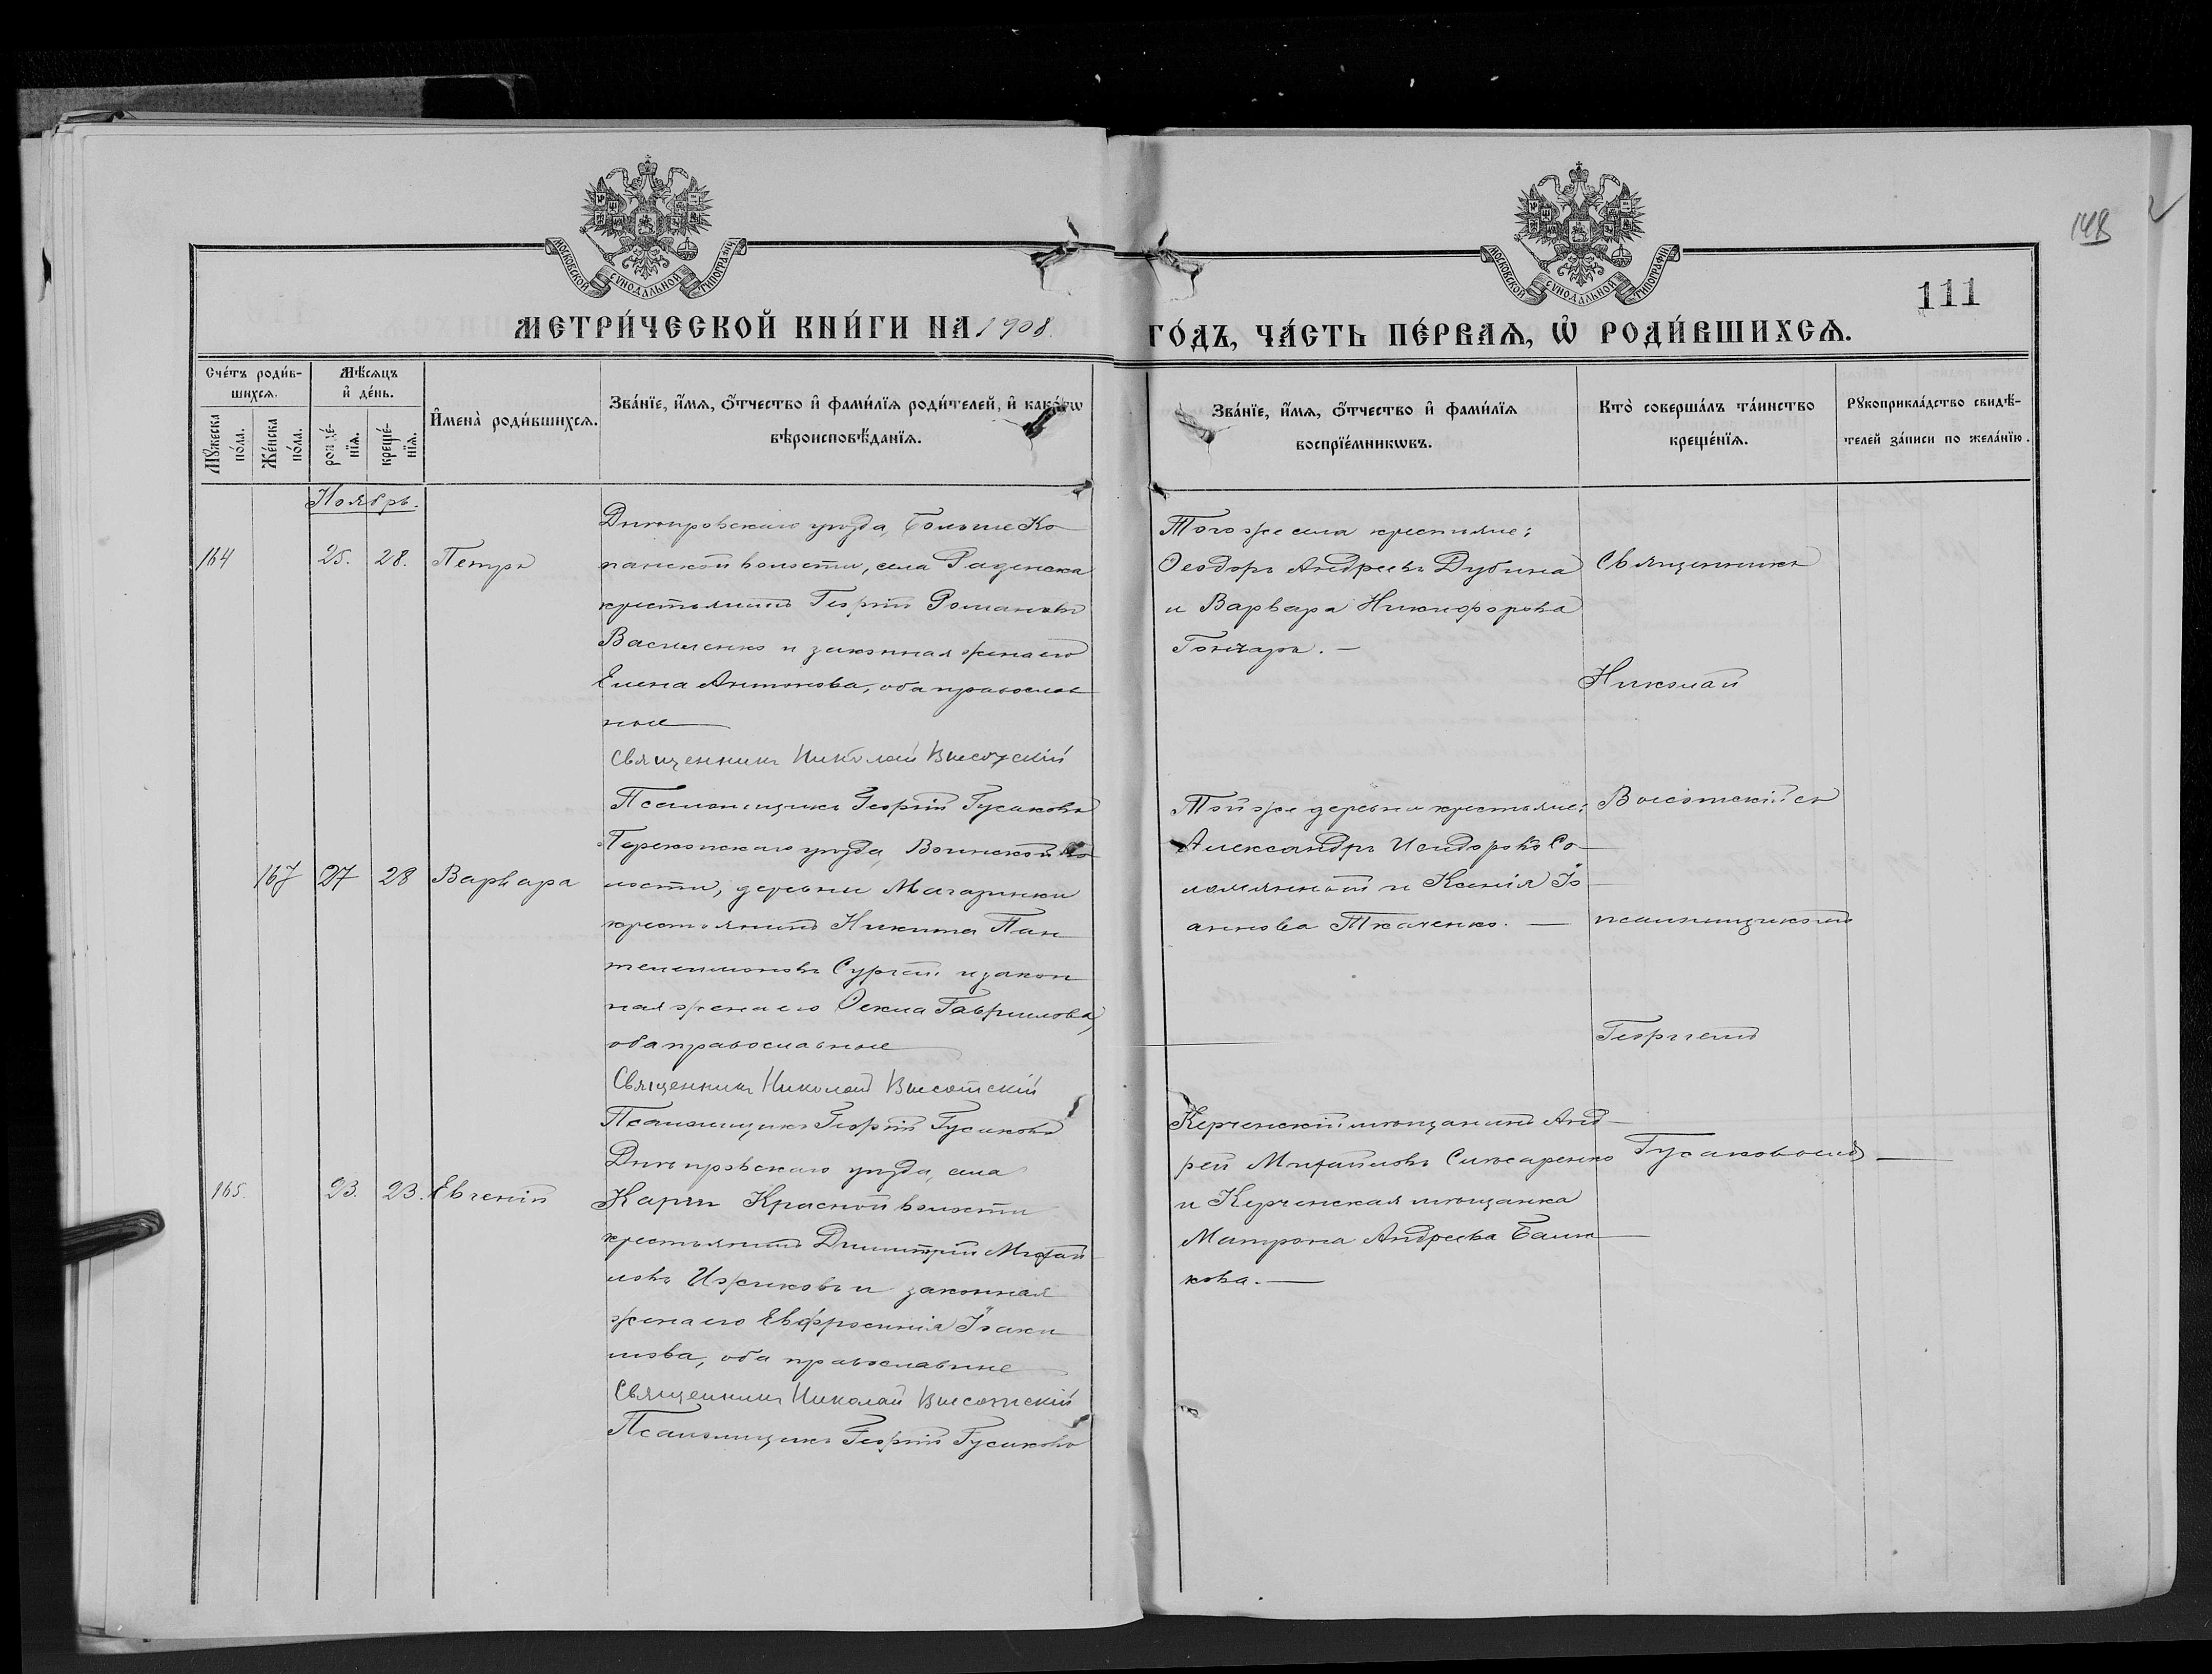 148
111
МОСКОВСКОЙ СѴНОДАЛЬНОЙ ТИПОГРАФІИ
МОСКОВСКОЙ СѴНОДАЛЬНОЙ ТИПОГРАФІИ
МЕТРИ́ЧЕСКОЙ КНИ́ГИ НА 1908 ГО́ДЪ, ЧА́СТЬ ПЕ́РВАѦ, Ѡ РОДИ́ВШИХСѦ.
Сче́тъ роди́в-
шихсѧ.
Мꙋ́жеска
по́ла.
Же́нска
по́ла.
Мѣ́сѧцъ
и҆ де́нь.
рожде́-
нїѧ.
креще́-
нїѧ.
И҆мена̀ роди́вшихсѧ.
Зва́нїе, и҆́мѧ, ѻ҆́тчество и҆ фами́лїѧ роди́телей, и҆ како́гѡ
вѣроисповѣ́данїѧ.
Зва́нїе, и҆́мѧ, ѻ҆́тчество и҆ фами́лїѧ
воспрїе́мникѡвъ.
Кто̀ соверша́лъ та́инство
креще́нїѧ.
Рꙋкоприкла́дство свидѣ́-
телей за́писи по жела́нїю.
Ноябрь.
164
25. 28.
Петръ
Днѣпровскаго уѣзда, Больше Ко-
панской волости, села Раденска
крестьянинъ Георгій Романовъ
Василенко и законная жена его
Елена Антонова, оба православ
ные
Священникъ Николай Высотскій
Псаломщикъ Георгій Гусаковъ
Того же села крестьяне:
Ѳеодоръ Андреевъ Дубина
и Варвара Никифорова
Гончаръ. —
Священникъ
Николай
Высотскій съ
псаломщикомъ
Георгіемъ
Гусаковымъ —
167 27 28
Варвара
Перекопскаго уѣзда Воинской во
лости, деревни Магазинки
крестьянинъ Никита Пан
телеимоновъ Сургай и закон
ная жена его Ѳекла Гавриилова,
оба православные
Священникъ Николай Высотскій
Псаломщикъ Георгій Гусаковъ
Той же деревни крестьяне:
Александръ Исидоровъ Со-
ломянной и Ксенія Іо-
аннова Ткаченко. —
165.
23. 23.
Евгеній
Днѣпровскаго уѣзда, села
Карги Красной волости
крестьянинъ Димитрій Михай
ловъ Ижиковъ и законная
жена его Евфросинія Іоаки
мова, оба православные
Священникъ Николай Высотскій
Псаломщикъ Георгій Гусаковъ
Керченскій мѣщанинъ Анд-
рей Михайловъ Слюсаренко
и Керченская мѣщанка
Матрона Андреева Балю-
кова. —